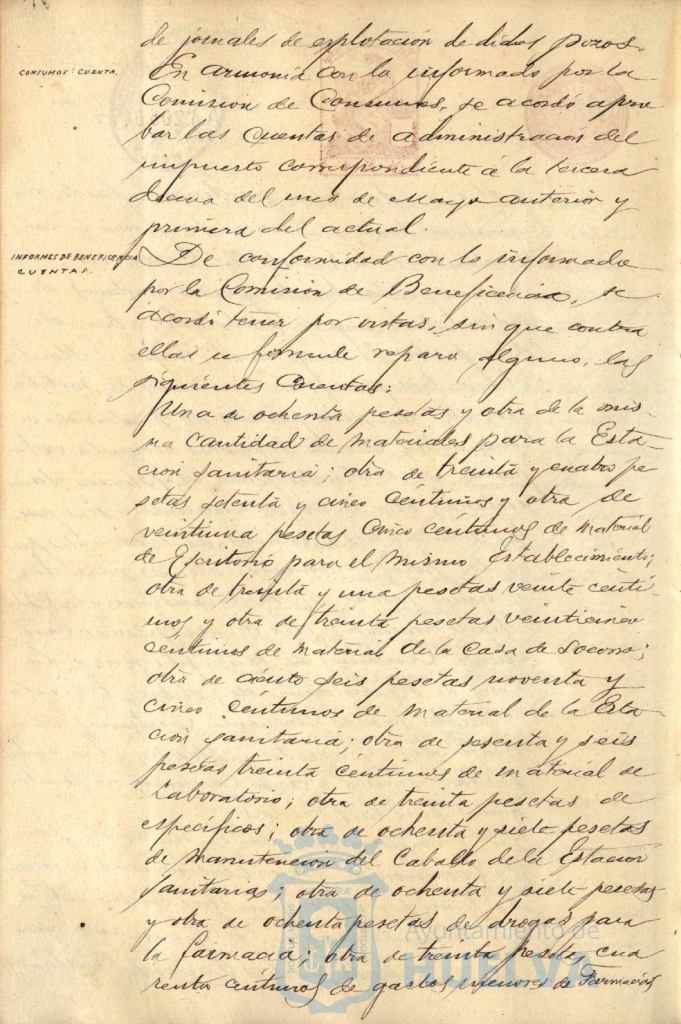 de jornales de explotación de dichos pozos.
CONSUMOS: CUENTA.
En armonía con lo informado por la
Comision de Consumos, se acordó apro
bar las cuentas de administracion del
impuesto correspondiente á la tercera
decena del mes de Mayo anterior y
primera del actual.
INFORMES DE BENEFICENCIA
CUENTAS.
De conformidad con lo informado
por la Comisión de Beneficencia, se
acordó tener por vistas, sin que contra
ellas se formule reparo alguno, las
siguientes cuentas:
Una de ochenta pesetas y otra de la mis-
ma cantidad de materiales para la Esta-
cion sanitaria; otra de treinta y cuatro pe
setas setenta y cinco céntimos y otra de
veintiuna pesetas cinco céntimos de material
de Escritorio para el mismo Establecimiento;
otra de treinta y una pesetas veinte cénti-
mos y otra de treinta pesetas veinticinco
céntimos de material de la Casa de Socorro;
otra de ciento seis pesetas noventa y
cinco céntimos de material de la Esta-
cion sanitaria; otra de sesenta y seis
pesetas treinta céntimos de material de
Laboratorio; otra de treinta pesetas de
específicos; otra de ochenta y siete pesetas
de manutencion del Caballo de la Estacion
sanitaria; otra de ochenta y siete pesetas
y otra de ochenta pesetas de drogas para
la farmacia; otra de treinta pesetas cua
renta céntimos de gastos menores de Farmacia
Ayuntamiento de
HUELVA